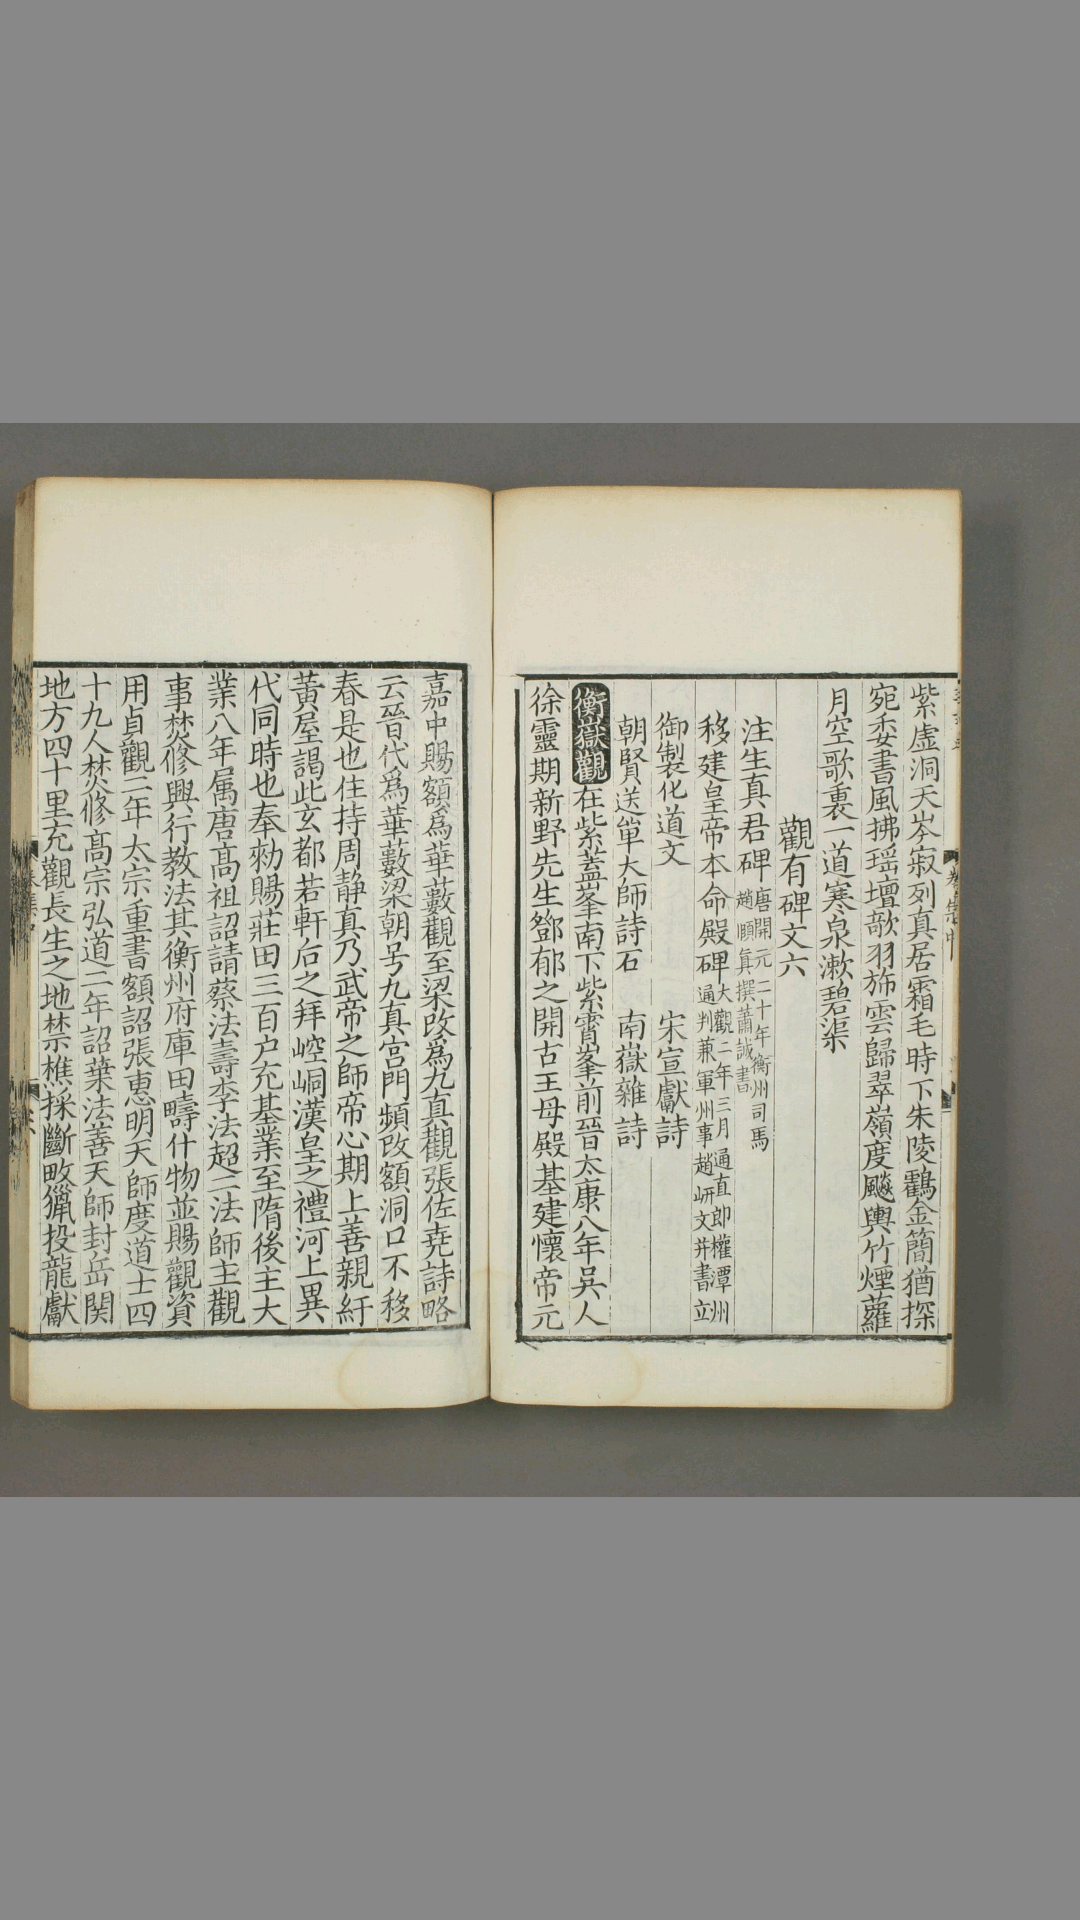 紫虛洞天岑寂列真居霜毛時下朱陵鸖金簡猶探
宛委書風拂瑶壇歌羽斾雲歸翠嶺度飈輿竹煙蘿
月空歌裏一道寒泉漱碧渠
觀有碑文六
注生真君碑唐開元二十年衡州司馬
趙頤真撰蕭誠書
移建皇帝本命殿碑大觀二年三月通直郎權潭州
通判兼軍州事趙岍文并書立
御製化道文 宋宣獻詩
朝賢送單大師詩石 南嶽雜詩
衡嶽觀在紫蓋峯南下紫霄峯前晉太康八年吳人
徐靈期新野先生鄧郁之開古王母殿基建懷帝元
嘉中賜額爲華藪觀至梁改爲九真觀張佐堯詩略
云晉代爲華藪梁朝号九真宮門頻改額洞口不移
春是也住持周静真乃武帝之師帝心期上善親紆
黃屋謁此玄都若軒后之拜崆峒漢皇之禮河上異
代同時也奉勑賜莊田三百户充基業至隋後主大
業八年属唐高祖詔請蔡法壽李法超二法師主觀
事焚修興行教法其衡州府庫田疇什物並賜觀資
用貞觀二年太宗重書額詔張惠明天師度道士四
十九人焚修高宗弘道二年詔葉法善天師封岳関
地方四十里充觀長生之地禁樵採斷畋獵投龍獻